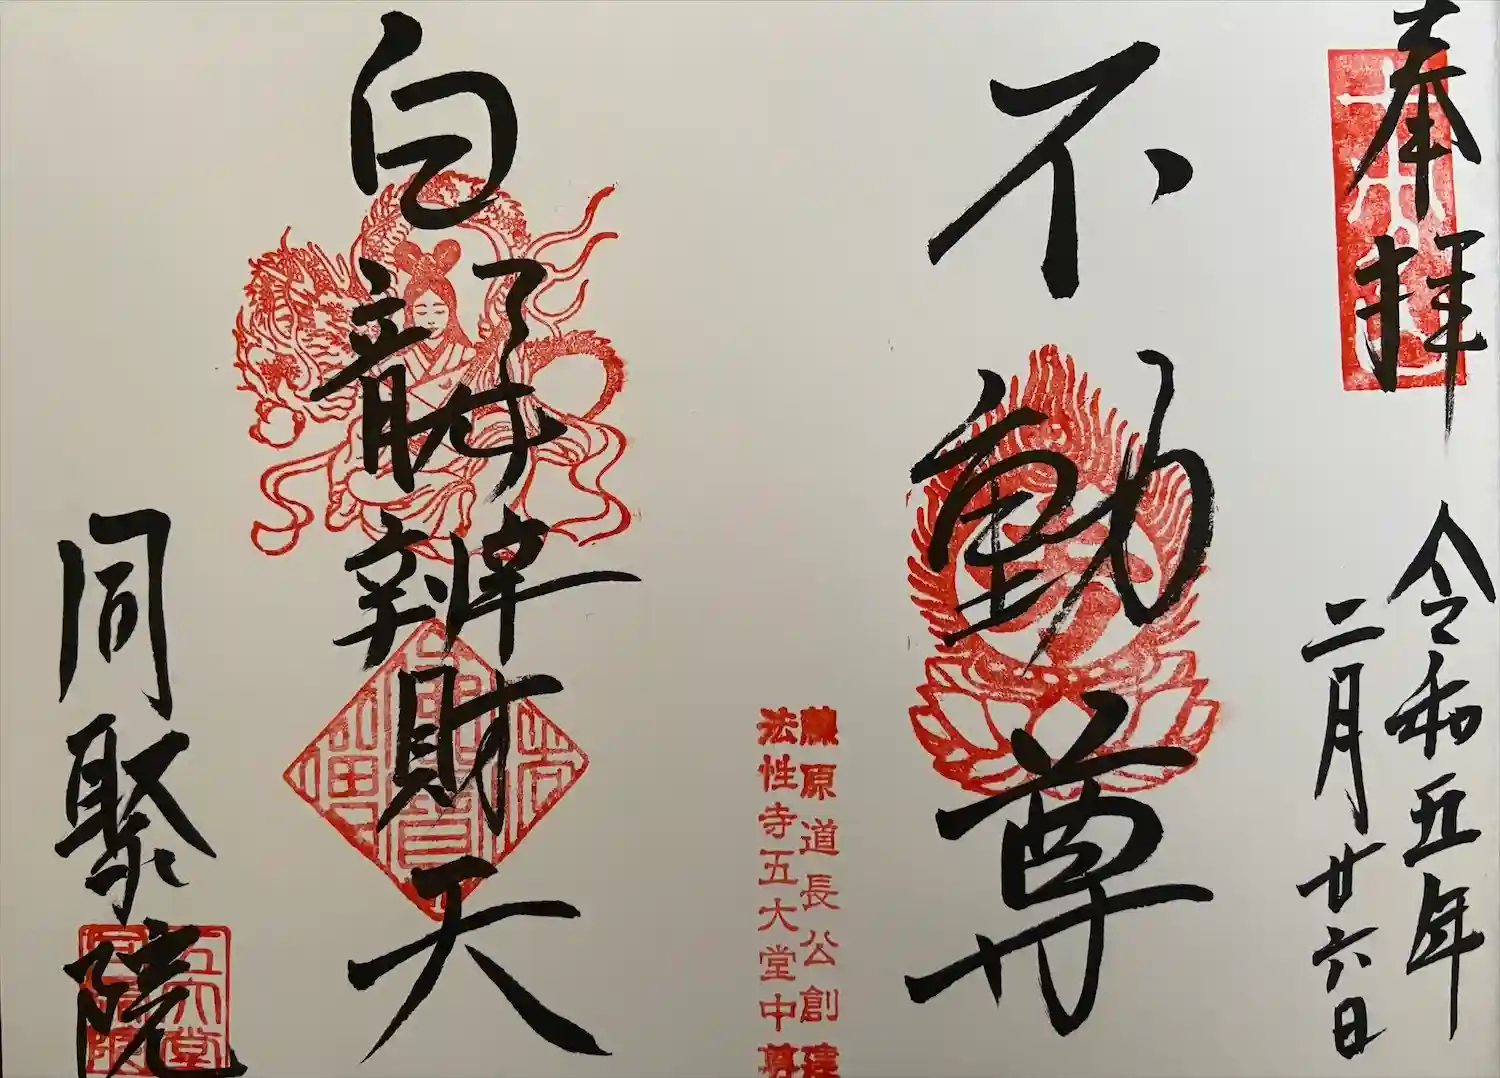 奉拝
令和五年
二月廿六日
不動尊
藤原道長公創建
法性寺五大堂中尊
白龍辨財天
同聚院
五大堂
同聚院